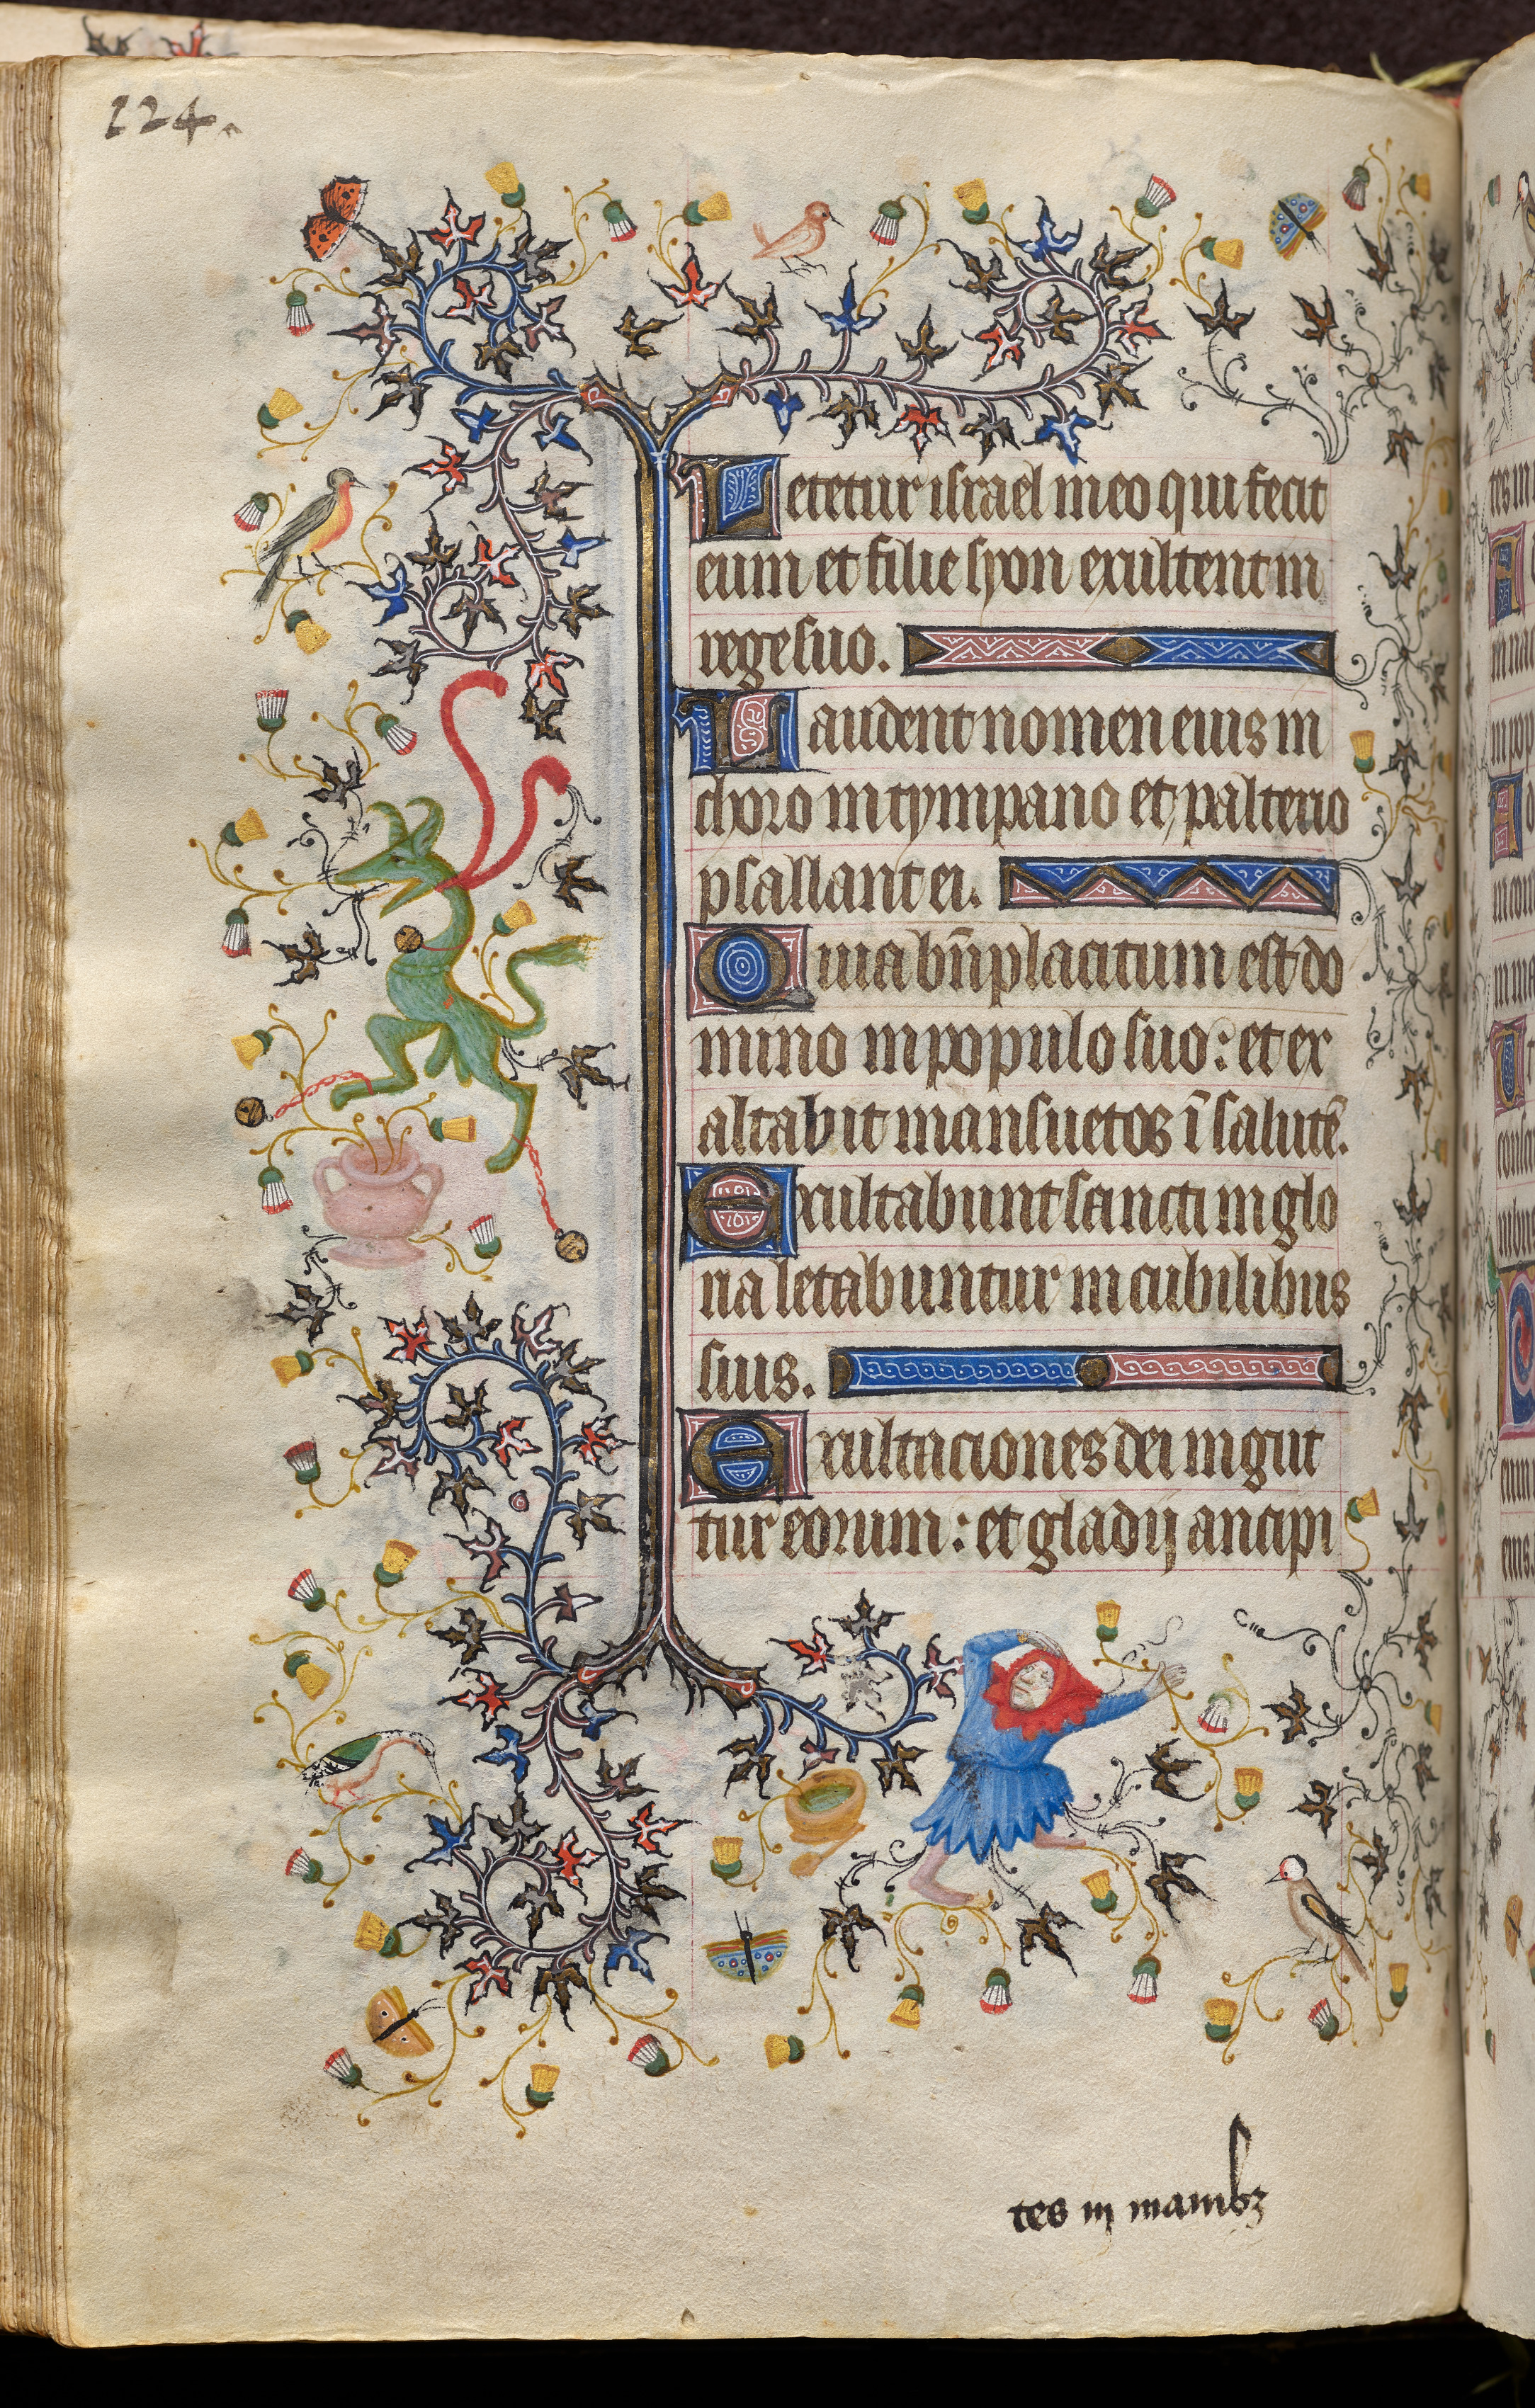 224.
Letetur israel in eo qui fecit
eum et filie syon exultent in
rege suo.
Laudent nomen eius in
choro in tympano et psalterio
psallant ei.
Quia bn̄placitum est do
mino in populo suo: et ex
altabit mansuetos ī salutē.
Exultabunt sancti in glo
ria letabuntur in cubilibus
suis.
Exultaciones dei in gut
ture eorum: et gladij ancipi
tes in manibꝫ